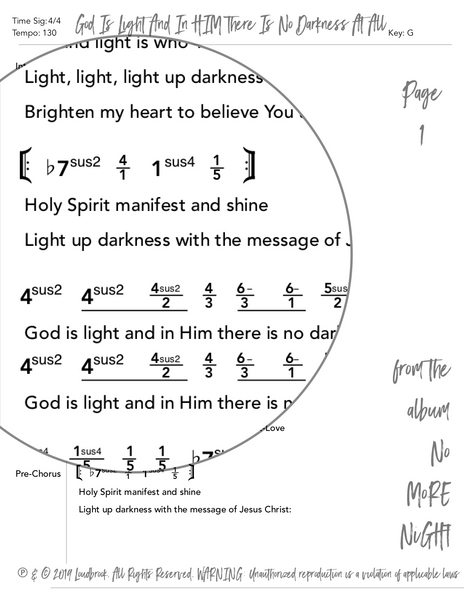 Time Sig:4/4
Tempo: 130
God Is Light And In HIM There Is No Darkness At All
Key: G
light is who
Light, light, light up darkness
Brighten my heart to believe You
Page
1
[: ♭7sus2 4/1 1sus4 1/5 :]
Holy Spirit manifest and shine
Light up darkness with the message of
4sus2 4sus2 4sus2/2 4/3 6-/3 6-/1 5sus/2
God is light and in Him there is no dar
4sus2 4sus2 4sus2/2 4/3 6-/3 6-/1
God is light and in Him there is n
from the
album
No
MoRE
NiGHT
-Love
1sus4/5 1/5 1/5 ♭7s
Pre-Chorus
[: ♭7sus 1 1/5 :]
Holy Spirit manifest and shine
Light up darkness with the message of Jesus Christ:
℗ & © 2019 Loudbrook. All Rights Reserved. WARNING: Unauthorized reproduction is a violation of applicable laws